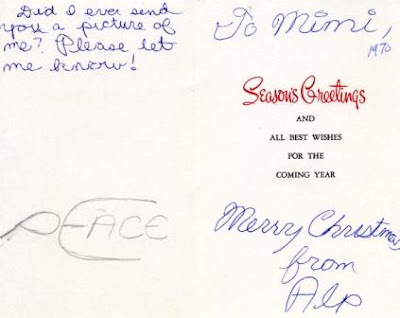 Did I ever send
you a picture of
me? Please let
me know!
PEACE
To Mimi,
1970
Season's Greetings
AND
ALL BEST WISHES
FOR THE
COMING YEAR
Merry Christmas
from
Alp